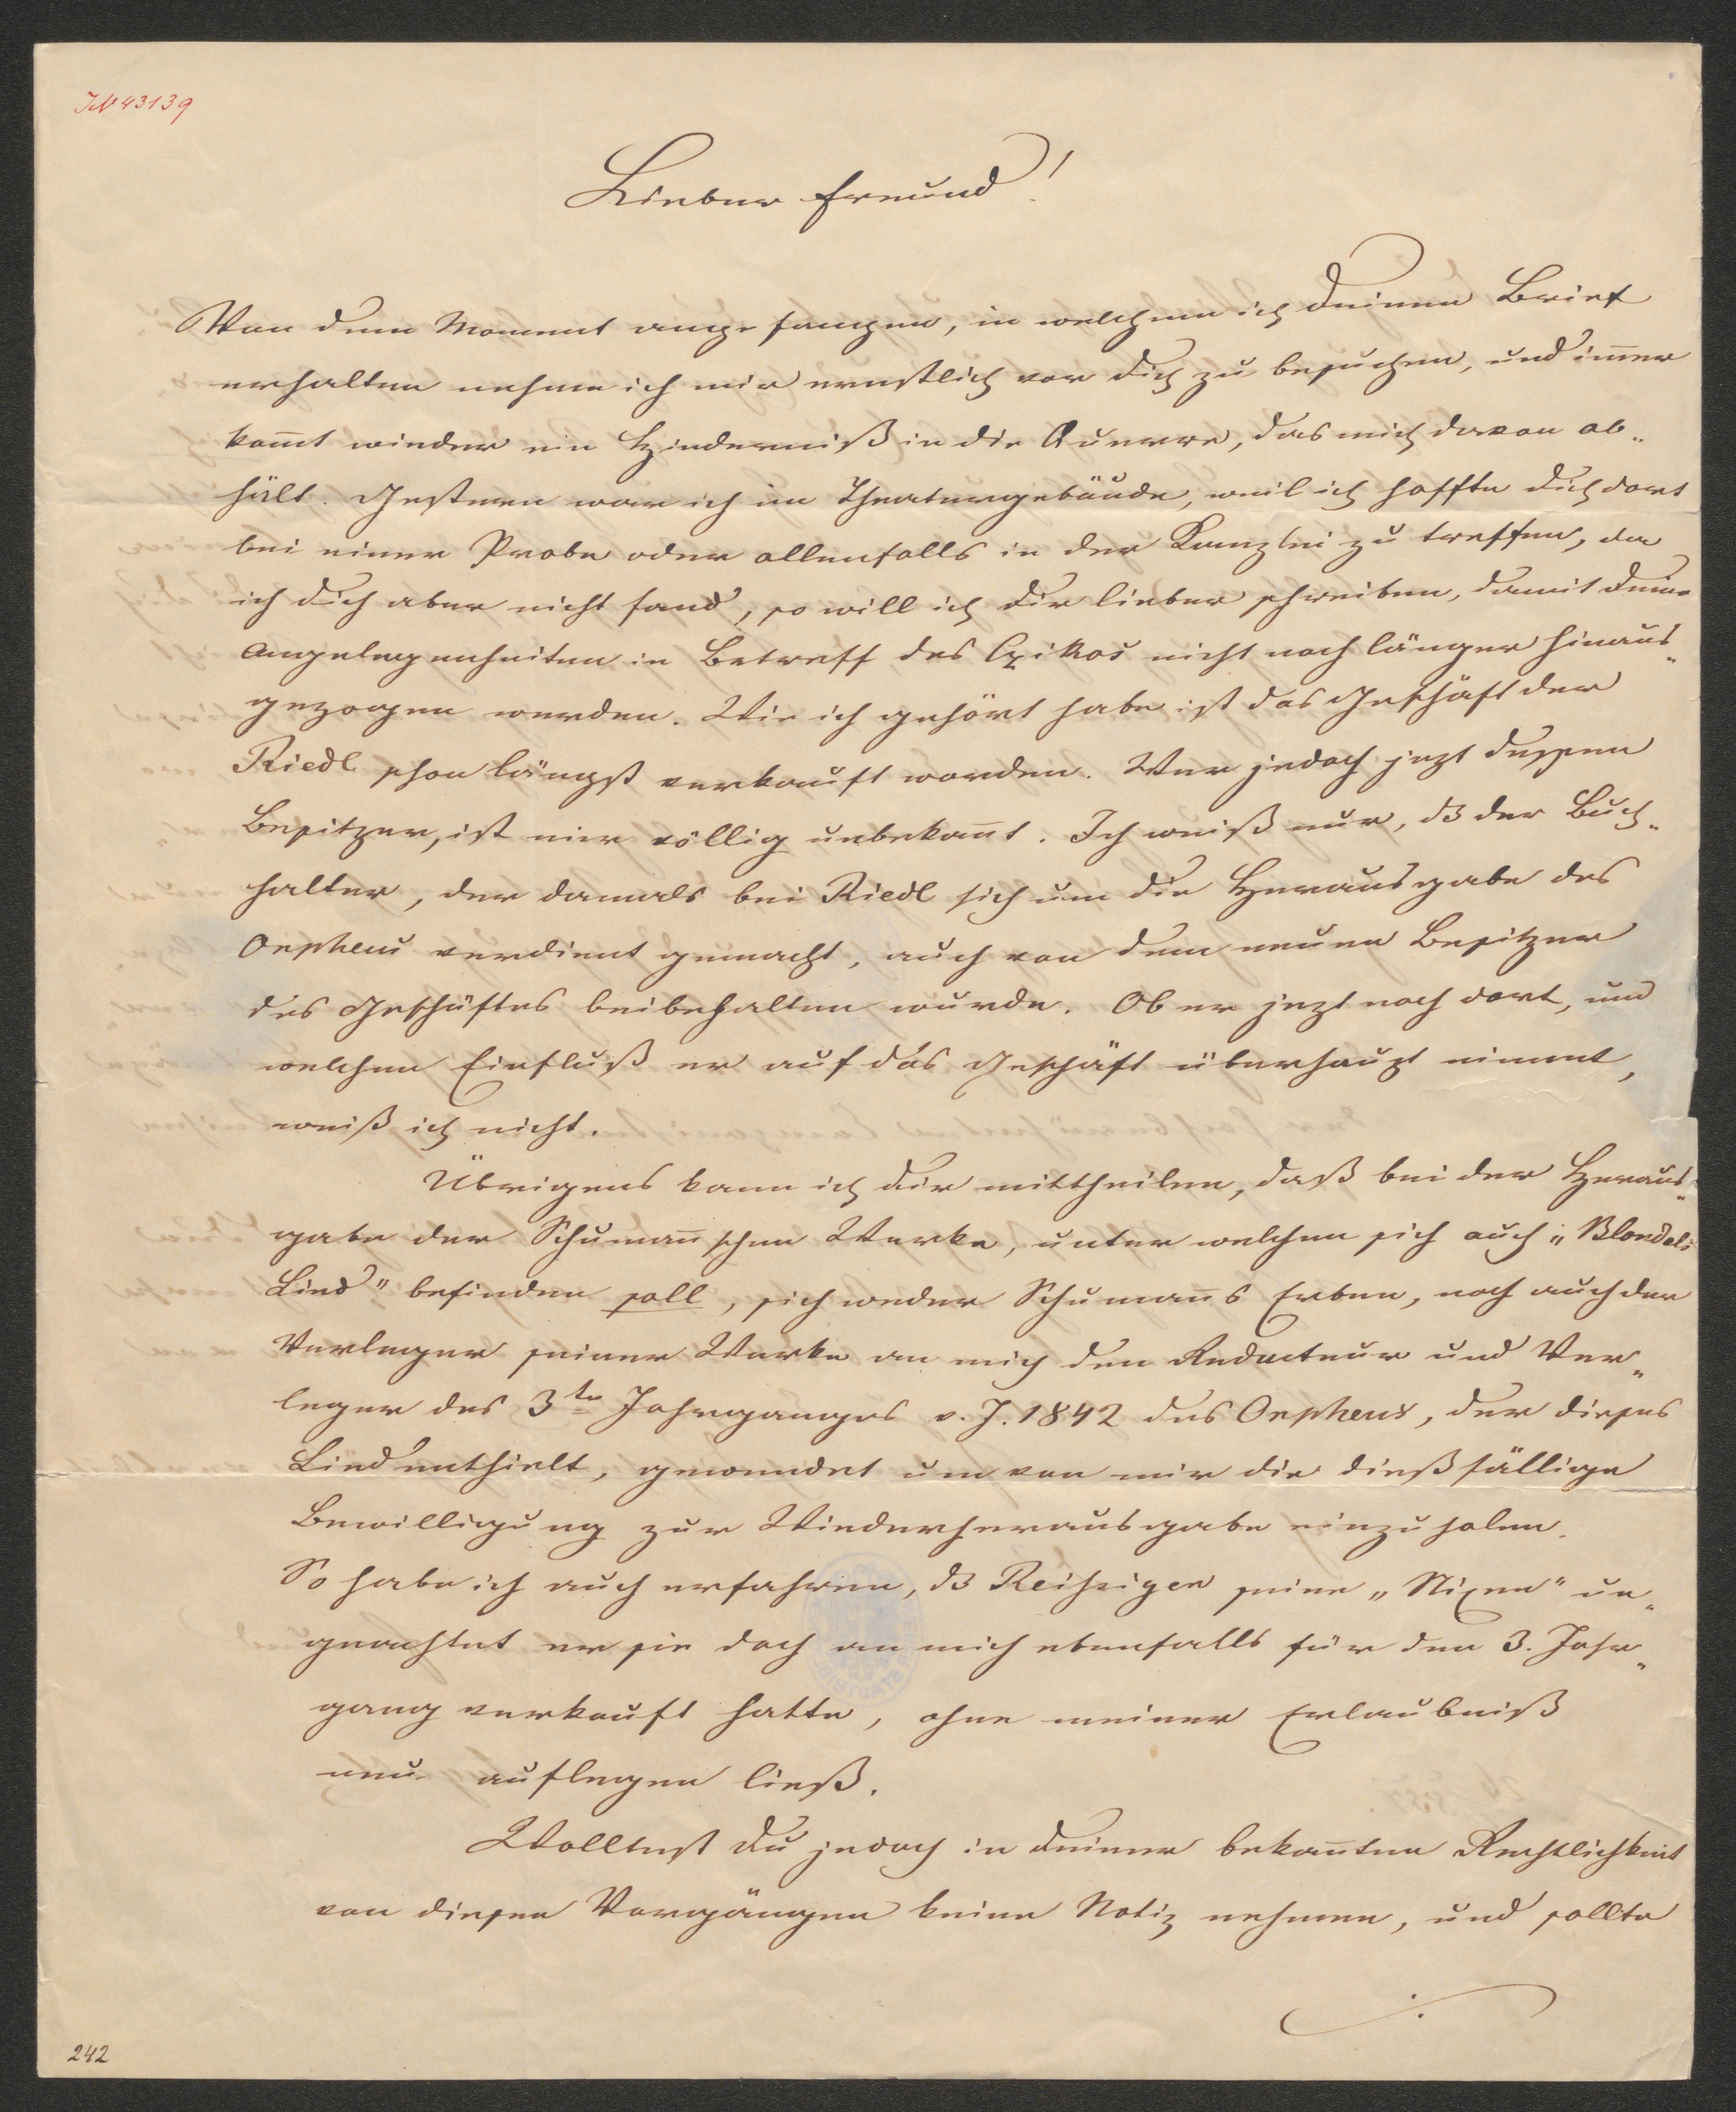 IN 43139
Lieber Freund!
Von dem Moment angefangen, in welchem ich Deinen Brief
erhalten nehme ich mir ernstlich vor Dich zu besuchen, und im̄er
kom̄t wieder ein Hinderniß in die Queere, das mich davon ab„
hält. Gestern war ich im Theatergebäude, weil ich hoffte Dich dort
bei einer Probe oder allenfalls in der Kanzlei zu treffen, da
ich Dich aber nicht fand, so will ich Dir lieber schreiben, damit Deine
Angelegenheiten in Betreff des Czikos nicht noch länger hinaus„
gezogen werden. Wie ich gehört habe ist das Geschäft der
Riedl schon längst verkauft worden. Wer jedoch jezt dessen
Besitzer, ist mir völlig unbekan̄t. Ich weiß nur, dß der Buch„
halter, der damals bei Riedl sich um die Herausgabe des
Orpheus verdient gemacht, auch von dem neuen Besitzer
des Geschäftes beibehalten wurde. Ob er jezt noch dort, und
welchen Einfluß er auf das Geschäft überhaupt nimmt,
weiß ich nicht.
Übrigens kann ich Dir mittheilen, daß bei der Heraus„
gabe der Schuman̄'schen Werke, unter welchen sich auch „Blondels
Lied" befinden soll, sich weder Schuman̄s Erben, noch auch der
Verleger seiner Werke an mich den Redacteur und Ver„
leger des 3te Jahrganges v. J. 1842 des Orpheus, der dieses
Lied enthielt, gewendet um von mir die dießfällige
Bewilligung zur Wiederherausgabe einzuholen.
So habe ich auch erfahren, dß Reißiger seine „Nixen" un„
geachtet er sie doch an mich ebenfalls für den 3. Jahr„
gang verkauft hatte, ohne meiner Erlaubniß
neu auflegen ließ.
Wolltest Du jedoch in Deiner bekan̄ten Rechtlichkeit
von diesen Vorgängen keine Notiz nehmen, und sollte
./.
242